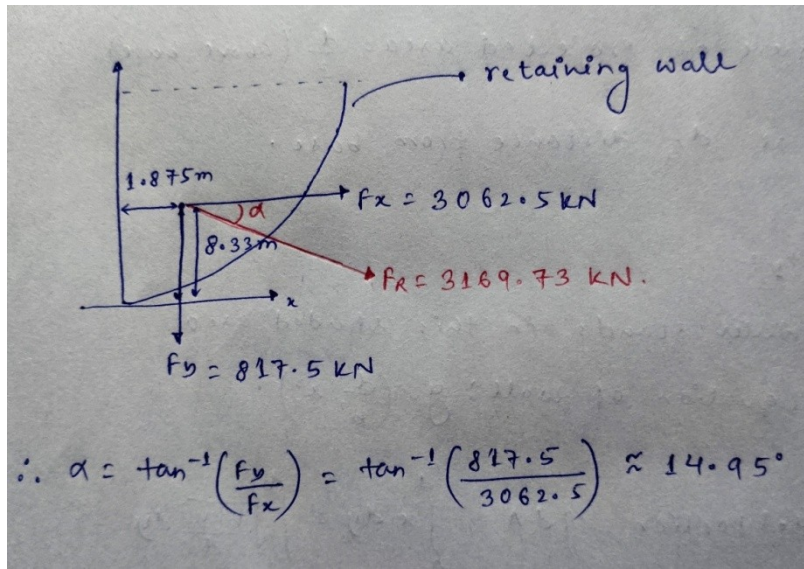 retaining wall
1.875m
Fx = 3062.5 KN
α
8.33m
FR = 3169.73 KN.
x
Fy = 817.5 KN
∴ α = tan⁻¹(Fy/Fx) = tan⁻¹(817.5/3062.5) ≈ 14.95°